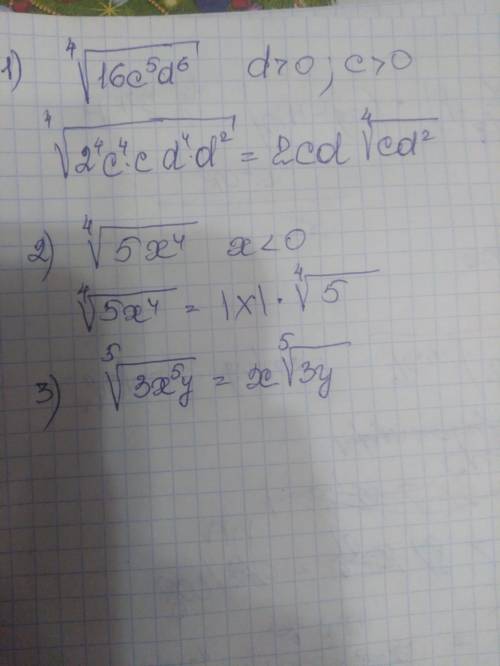 1) ⁴√(16c⁵d⁶) d>0; c>0
⁴√(2⁴c⁴·c d⁴·d²) = 2cd ⁴√(cd²)
2) ⁴√(5x⁴) x<0
⁴√(5x⁴) = |x|·⁴√5
3) ⁵√(3x⁵y) = x ⁵√(3y)